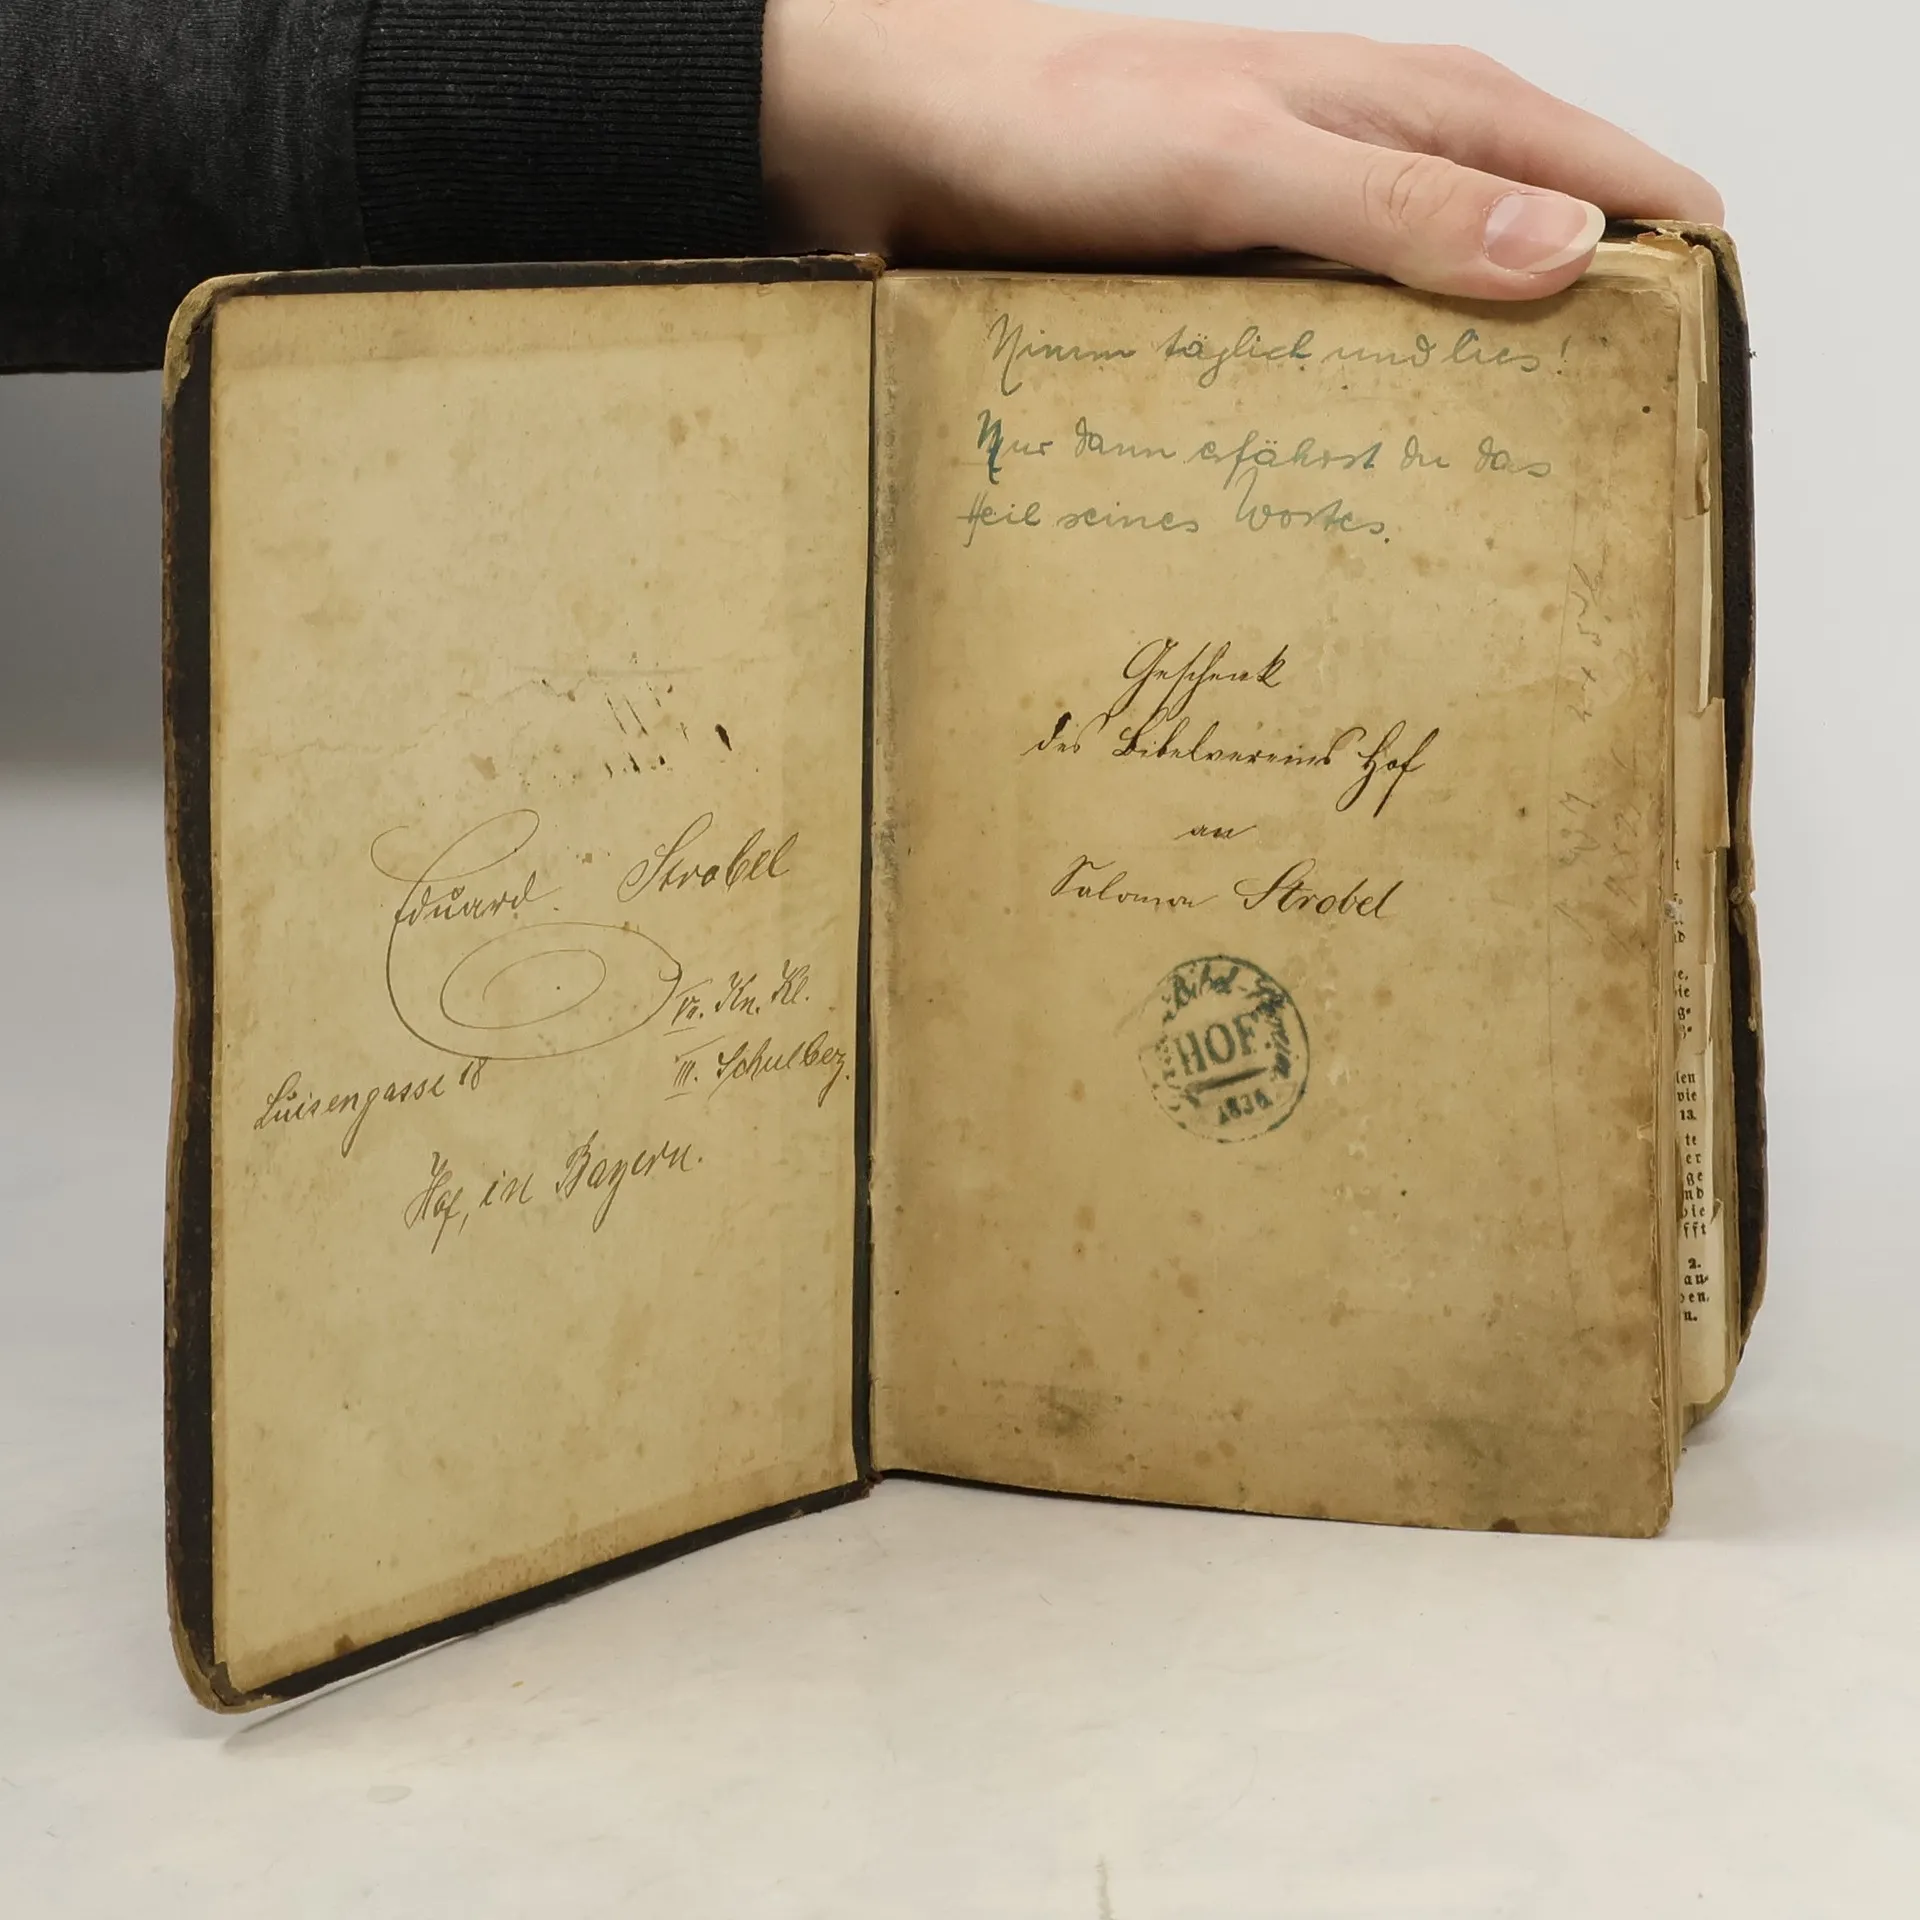 Eduard Strobel
VI. Kn. Kl.
III. Schulbez.
Luisengasse 18
Hof, in Bayern.
Nimm täglich und lies!
Nur dann erfährst du das
Heil seines Wortes.
Geschenk
des Bibelvereins Hof
an
Salomon Strobel
Bibel-Verein
HOF
1836
len
vie
13.
te
er
ge
nd
die
fft
2.
an-
den,
n.